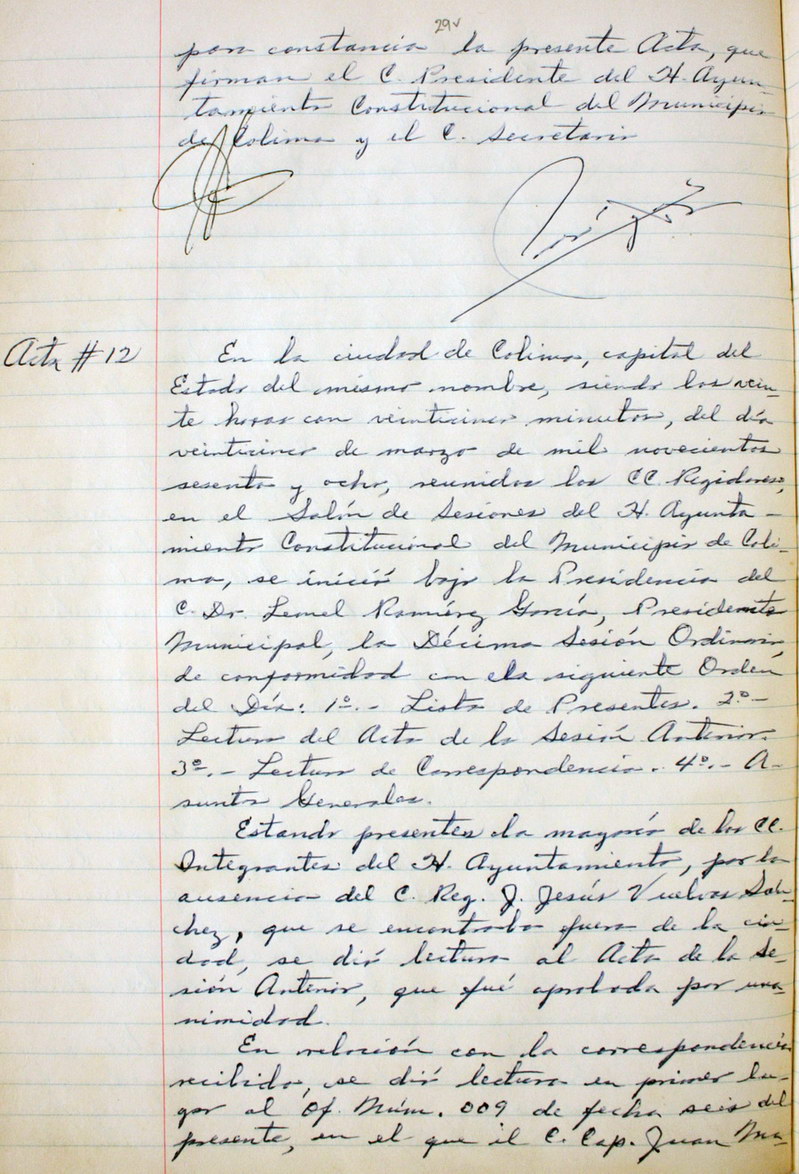 29v
para constancia la presente Acta, que
firman el C. Presidente del H. Ayun-
tamiento Constitucional del Municipio
de Colima y el C. Secretario
Acta #12
En la ciudad de Colima, capital del
Estado del mismo nombre, siendo las vein-
te horas con veinticinco minutos, del día
veinticinco de marzo de mil novecientos
sesenta y ocho, reunidos los CC. Regidores,
en el Salón de Sesiones del H. Ayunta-
miento Constitucional del Municipio de Coli-
ma, se inició bajo la Presidencia del
C. Dr. Leonel Ramírez García, Presidente
Municipal, la Décima Sesión Ordinaria,
de conformidad con la siguiente Orden
del Día: 1º.- Lista de Presentes. 2º.-
Lectura del Acta de la Sesión Anterior.
3º.- Lectura de Correspondencia. 4º.- A-
suntos Generales.
Estando presentes la mayoría de los CC.
Integrantes del H. Ayuntamiento, por la
ausencia del C. Reg. J. Jesús Vuelvas Sán-
chez, que se encontraba fuera de la ciu-
dad, se dió lectura al Acta de la Se-
sión Anterior, que fué aprobada por una-
nimidad.
En relación con la correspondencia
recibida, se dió lectura en primer lu-
gar al Of. Núm. 009 de fecha seis del
presente, en el que el C. Cap. Juan Ma-